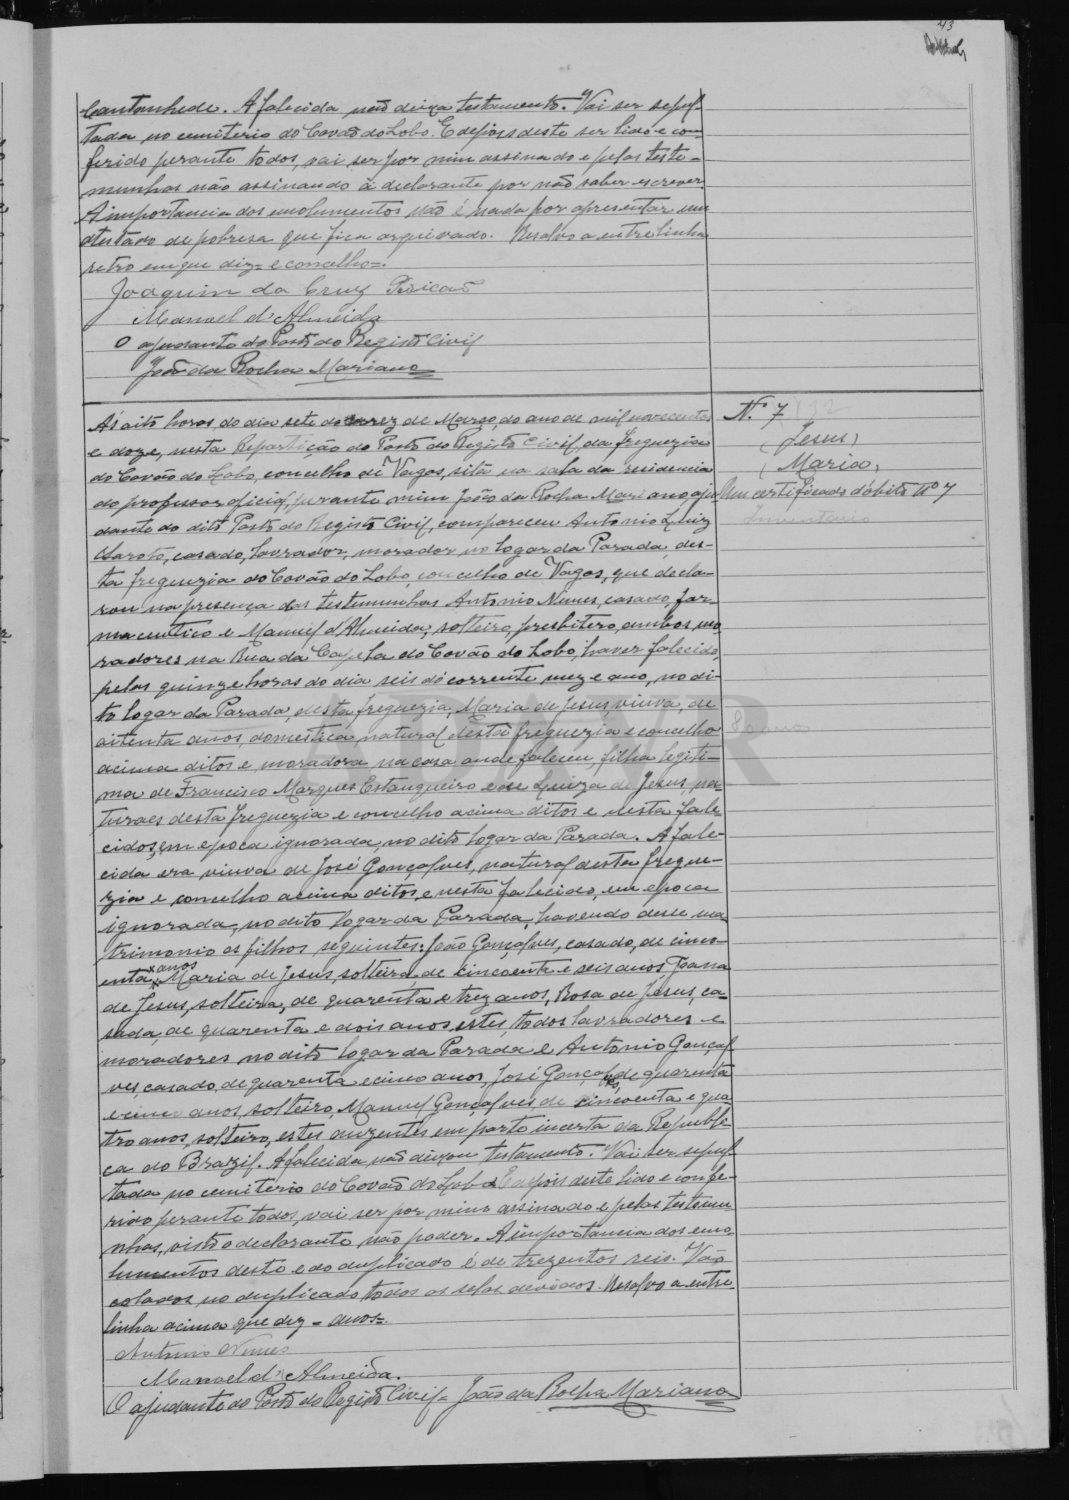 43
Cantanhede. A falecida não deixa testamento. Vai ser sepul-
tada no cemiterio do Covão do Lobo. E depois deste ser lido e con-
ferido perante todos, vai ser por mim assinado e pelas teste-
munhas não assinando a declarante por não saber escrever.
A importancia dos emolumentos não é nada por apresentar um
atestado de pobresa que fica arquivado. Resalvo a entrelinha
retro em que diz = e concelho =.
Joaquim da Cruz Pericão
Manoel d'Almeida
O ajudante do Posto do Registo Civil
João da Rocha Mariano
Nº 7
Jesus,
Maria,
Um certificado d'óbito nº 7
Inventario
80 anos
Ás oito horas do dia sete do mez de Março, do ano de mil novecentos
e doze, nesta Repartição do Posto do Registo Civil, da freguezia
do Covão do Lobo, concelho de Vagos, sita na sala da residencia
do professor oficial, perante mim João da Rocha Mariano aju-
dante do dito Posto do Registo Civil, compareceu Antonio Luiz
casado, lavrador, morador no logar da Parada, des-
ta freguezia do Covão do Lobo, concelho de Vagos, que decla-
rou na presença das testemunhas Antonio Nunes, casado, far-
maceutico e Manuel d'Almeida, solteiro, presbitero, ambos mo-
radores na Rua da Capela do Covão do Lobo, haver falecido,
pelas quinze horas do dia seis do corrente mez e ano, no di-
to logar da Parada, desta freguezia, Maria de Jesus, viuva, de
oitenta anos, domestica, natural desta freguezia e concelho
acima ditos e moradora na casa onde faleceu, filha legiti-
ma de Francisco Marques Estanqueiro e de Luiza de Jesus, na-
turaes desta freguezia e concelho acima ditos e nesta fale-
cidos, em epoca ignorada, no dito logar da Parada. A fale-
cida era viuva de José Gonçalves, natural desta fregue-
zia e concelho acima ditos, e nesta falecido, em epoca
ignorada, no dito logar da Parada, havendo desse ma-
trimonio os filhos seguintes: João Gonçalves, casado, de cinco-
enta anos, Maria de Jesus, solteira, de cincoenta e seis anos, Joana
de Jesus, solteira, de quarenta e trez anos, Rosa de Jesus, ca-
sada, de quarenta e dois anos, estes todos lavradores e
moradores no dito logar da Parada e Antonio Gonçal-
ves, casado, de quarenta e cinco anos, José Gonçalves, de quarenta
e cinco anos, solteiro, Manuel Gonçalves de cincoenta e qua-
tro anos, solteiro, estes auzentes em parte incerta da Republi-
ca do Brazil. A falecida não deixou testamento. Vai ser sepul-
tada no cemiterio do Covão do Lobo. E depois deste lido e confe-
rido perante todos, vai ser por mim assinado e pelas testemu-
nhas, visto o declarante não poder. A importancia dos emo-
lumentos deste e do duplicado é de trezentos reis. Vão
colados no duplicado todos os selos devidos. Resalvo a entre-
linha acima que diz = anos =.
Antonio Nunes
Manoel d'Almeida.
O ajudante do Posto do Registo Civil = João da Rocha Mariano